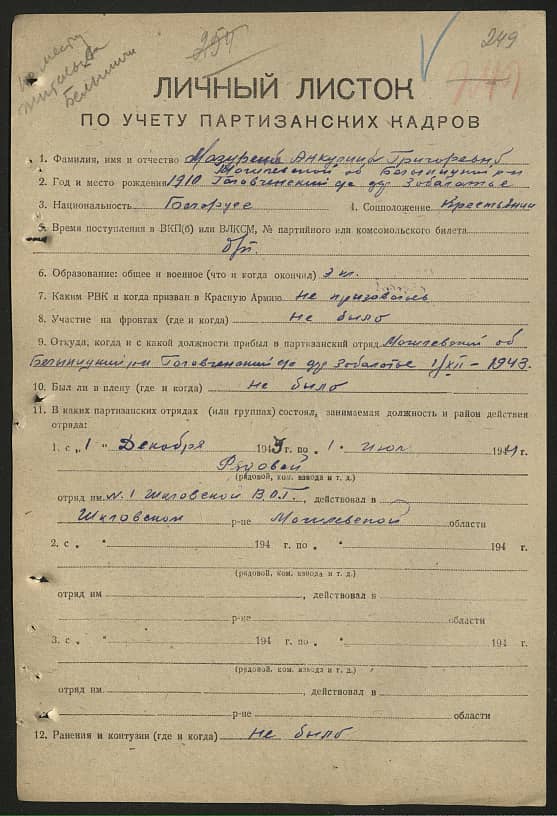 по месту
жительства
Белыничи
254
249
ЛИЧНЫЙ ЛИСТОК
ПО УЧЕТУ ПАРТИЗАНСКИХ КАДРОВ
1. Фамилия, имя и отчество Григоревна
Могилевской об Белыницкий рн
2. Год и место рождения 1910 Головченский с/с дер Заболотье
3. Национальность Белорусс 4. Соцположение Крестьянин
5. Время поступления в ВКП(б) или ВЛКСМ, № партийного или комсомольского билета
б/п.
6. Образование: общее и военное (что и когда окончил) 3 кл.
7. Каким РВК и когда призван в Красную Армию не призвался
8. Участие на фронтах (где и когда) не было
9. Откуда, когда и с какой должности прибыл в партизанский отряд Могилевский об
Белыницкий рн Головченский с/с дер Заболотье 1/XII – 1943.
10. Был ли в плену (где и когда) не было
11. В каких партизанских отрядах (или группах) состоял, занимаемая должность и район действия
отряда:
1. с „ 1 “ Декабря 1943 г. по „ 1 “ Июл 1944 г.
Рядовой
(рядовой, ком. взвода и т. д.)
отряд им. N. 1 Шкловской В.О.Г. , действовал в
Шкловском р-не Могилевской области
2. с „ “ 194 г. по „ “ 194 г.
(рядовой, ком. взвода и т. д.)
отряд им , действовал в
р-не области
3. с „ “ 194 г. по „ “ 194 г.
(рядовой, ком. взвода и т. д.)
отряд им , действовал в
р-не области
12. Ранения и контузии (где и когда) не было